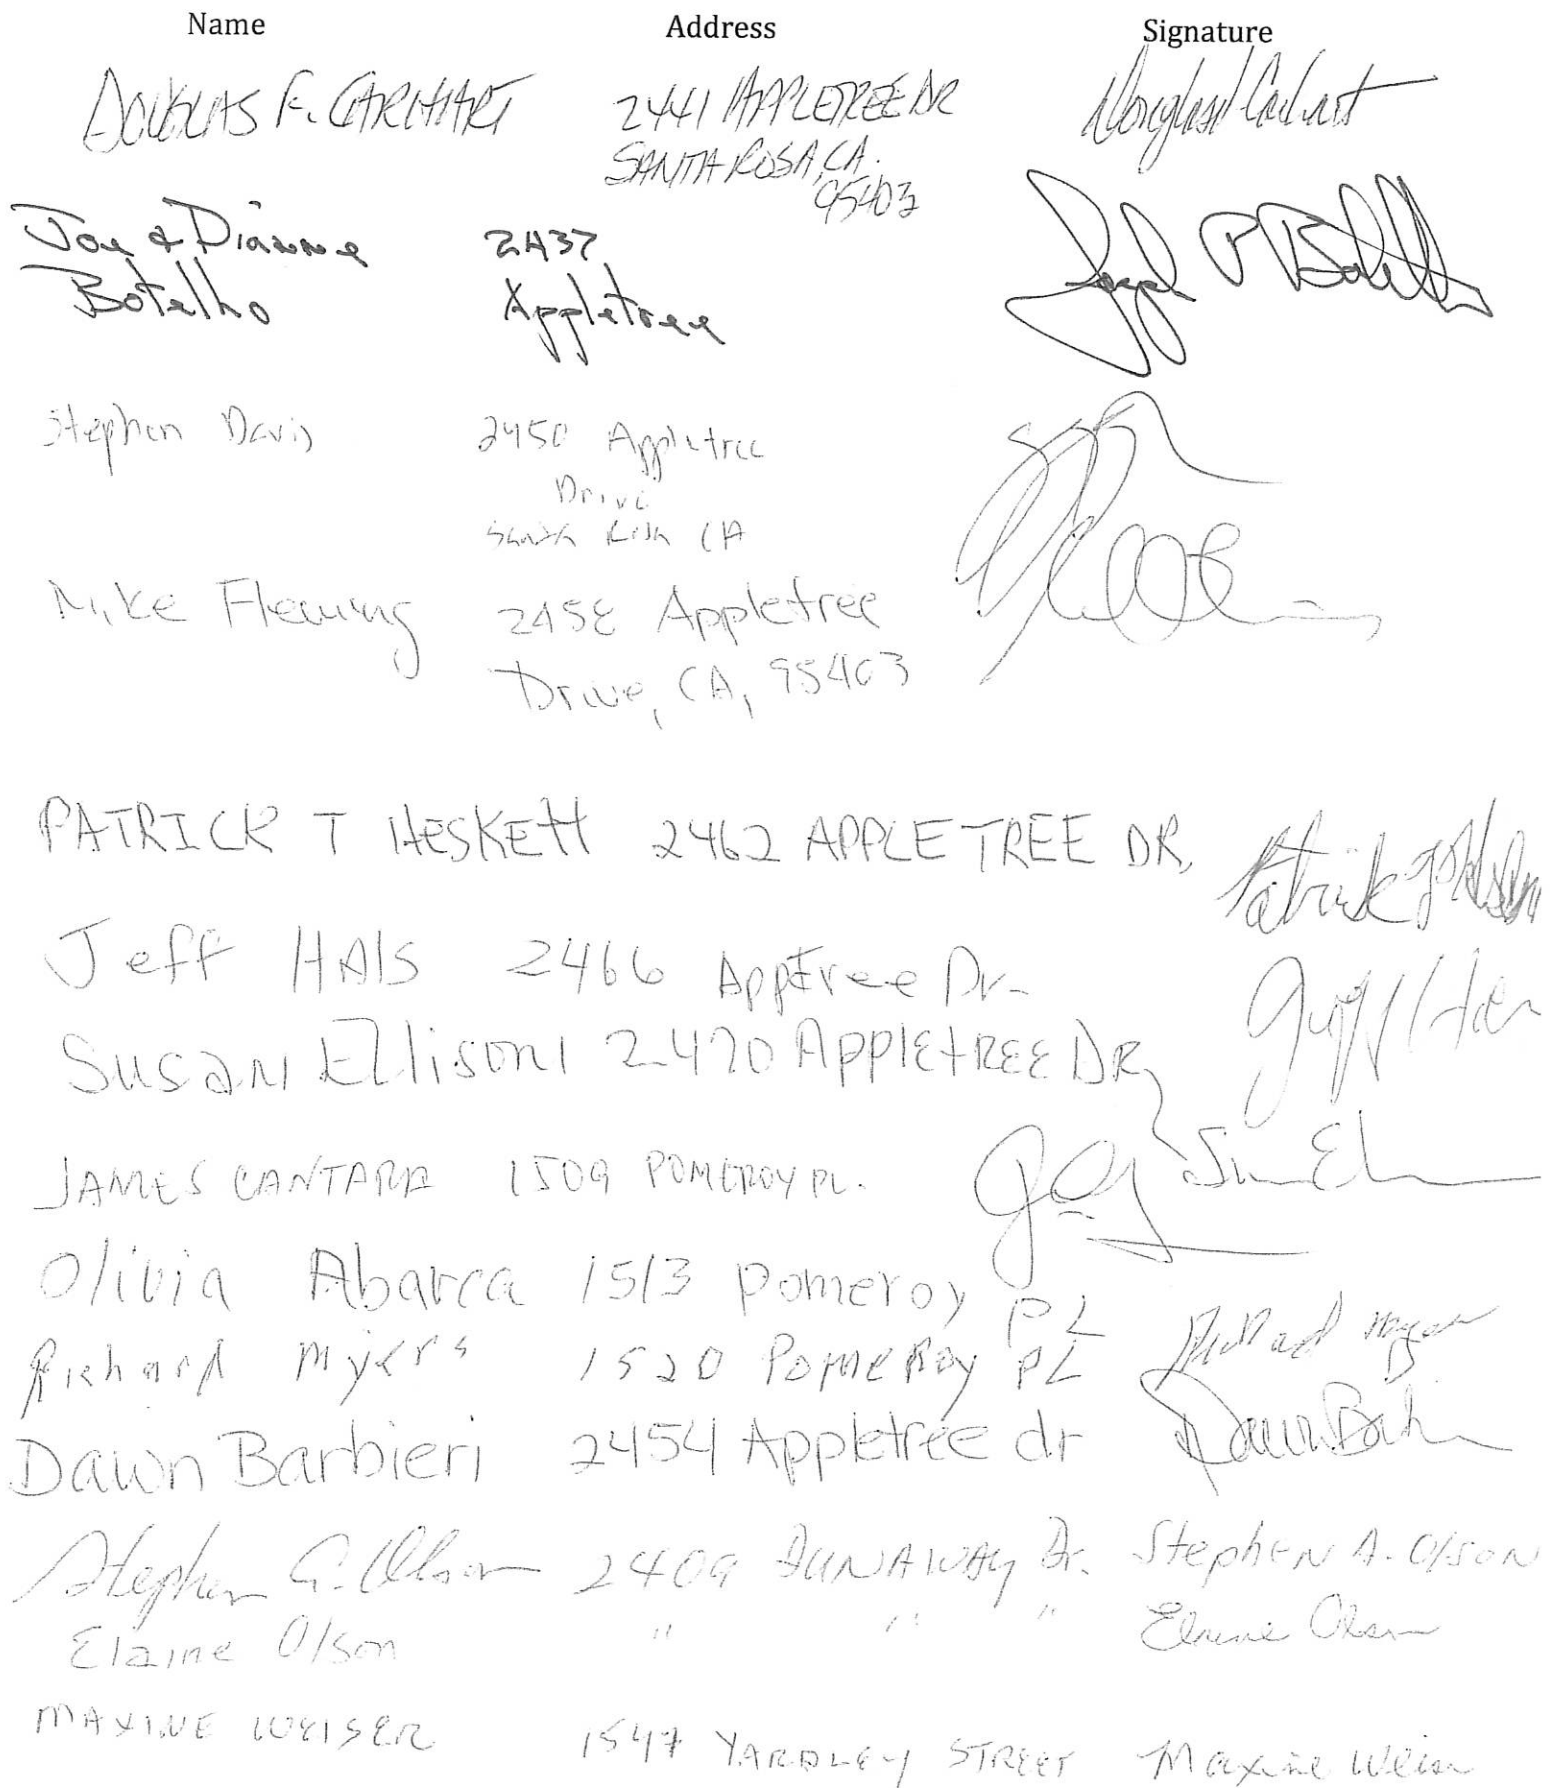 Name Address Signature
DOUGLAS F. CARHART 2441 APPLETREE DR
SANTA ROSA, CA.
95403
Joe & Dianne 2437 Joseph P Botelho
Botelho Appletree
Stephen Davis 2450 Appletree
Drive
Santa Rosa CA
Mike Fleming 2458 Appletree
Drive, CA, 95403
PATRICK T HESKETT 2462 APPLETREE DR,
Jeff HAls 2466 Apptree Dr.
SusaN Ellison 2470 AppletREE DR
JAMES CANTARA 1509 POMEROY PL.
Olivia Abarca 1513 pomeroy PL
Richard Myers 1520 PomeRoy PL Richard Myers
Dawn Barbieri 2454 Appletree dr
Stephen A. Olson 2409 DUNAWAY Dr. StephEN A. OlsoN
Elaine Olson " " " Elaine Olson
MAXINE WEISER 1547 YARDLEY STREET Maxine Weiser